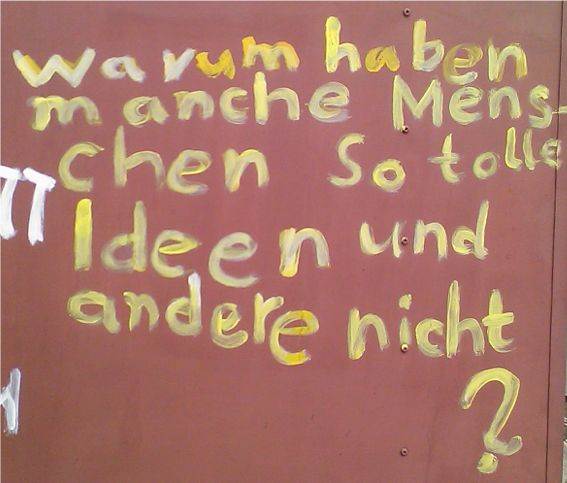 warum haben
manche Mens-
chen so tolle
Ideen und
andere nicht
?